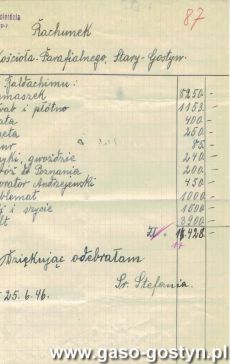 87
Rachunek
Kościoła Parafialnego, Stary-Gostyń.
Baldachimu:
maszek 8250 -
i płótno 1153 -
ata 400 -
eta 250 -
ur 85 -
yki, gwoździe 240 -
do Poznania 200 -
orator Andrzejewski 450 -
blemat 1000 -
i szycie 1500 -
lt 3900 -
Zł 428 -
Dziękując odebrałam
25.6.46. Sr. Stefania.
www.gaso-gostyn.pl